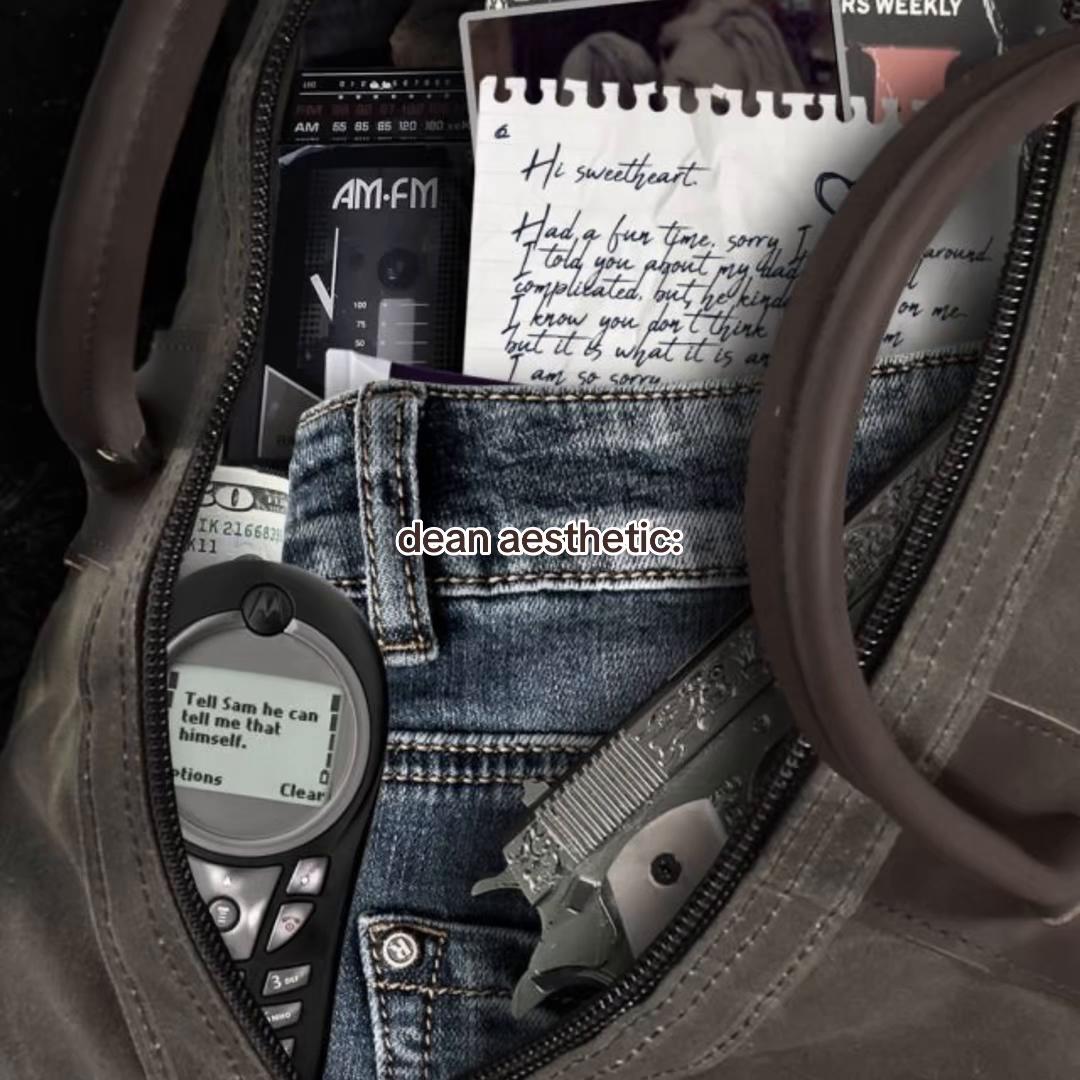 RS WEEKLY
AM 55 65 85 120 160
AM·FM
100
75
50
Hi sweetheart.
Had a fun time. sorry I around.
I told you about my dad
complicated, but he kinda on me
I know you don't think
but it is what it is an
I am so sorry
IK 2166839
K11
dean aesthetic:
Tell Sam he can
tell me that
himself.
ptions
Clear
3
R